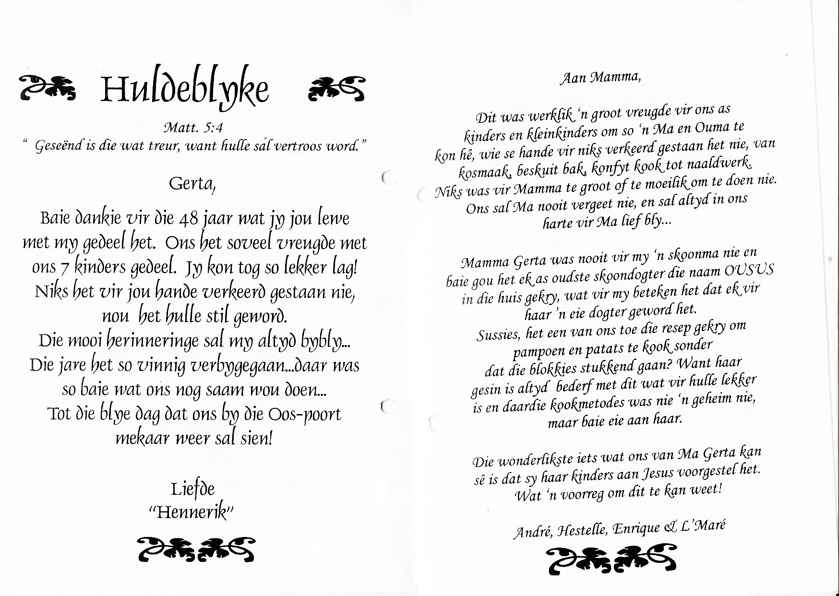 Huldeblyke
Matt. 5:4
“ Geseënd is die wat treur, want hulle sal vertroos word.”
Gerta,
Baie dankie vir die 48 jaar wat jy jou lewe
met my gedeel het. Ons het soveel vreugde met
ons 7 kinders gedeel. Jy kon tog so lekker lag!
Niks het vir jou hande verkeerd gestaan nie,
nou het hulle stil geword.
Die mooi herinneringe sal my altyd bybly...
Die jare het so vinnig verbygegaan...daar was
so baie wat ons nog saam wou doen...
Tot die blye dag dat ons by die Oos-poort
mekaar weer sal sien!
Liefde
“Hennerik”
Aan Mamma,
Dit was werklik ‘n groot vreugde vir ons as
kinders en kleinkinders om so ‘n Ma en Ouma te
kon hê, wie se hande vir niks verkeerd gestaan het nie, van
kosmaak, beskuit bak, konfyt kook tot naaldwerk.
Niks was vir Mamma te groot of te moeilik om te doen nie.
Ons sal Ma nooit vergeet nie, en sal altyd in ons
harte vir Ma lief bly...
Mamma Gerta was nooit vir my ‘n skoonma nie en
baie gou het ek as oudste skoondogter die naam OUSUS
in die huis gekry, wat vir my beteken het dat ek vir
haar ‘n eie dogter geword het.
Sussies, het een van ons toe die resep gekry om
pampoen en patats te kook sonder
dat die blokkies stukkend gaan? Want haar
gesin is altyd bederf met dit wat vir hulle lekker
is en daardie kookmetodes was nie ‘n geheim nie,
maar baie eie aan haar.
Die wonderlikste iets wat ons van Ma Gerta kan
sê is dat sy haar kinders aan Jesus voorgestel het.
Wat ‘n voorreg om dit te kan weet!
André, Hestelle, Enrique & L’Maré